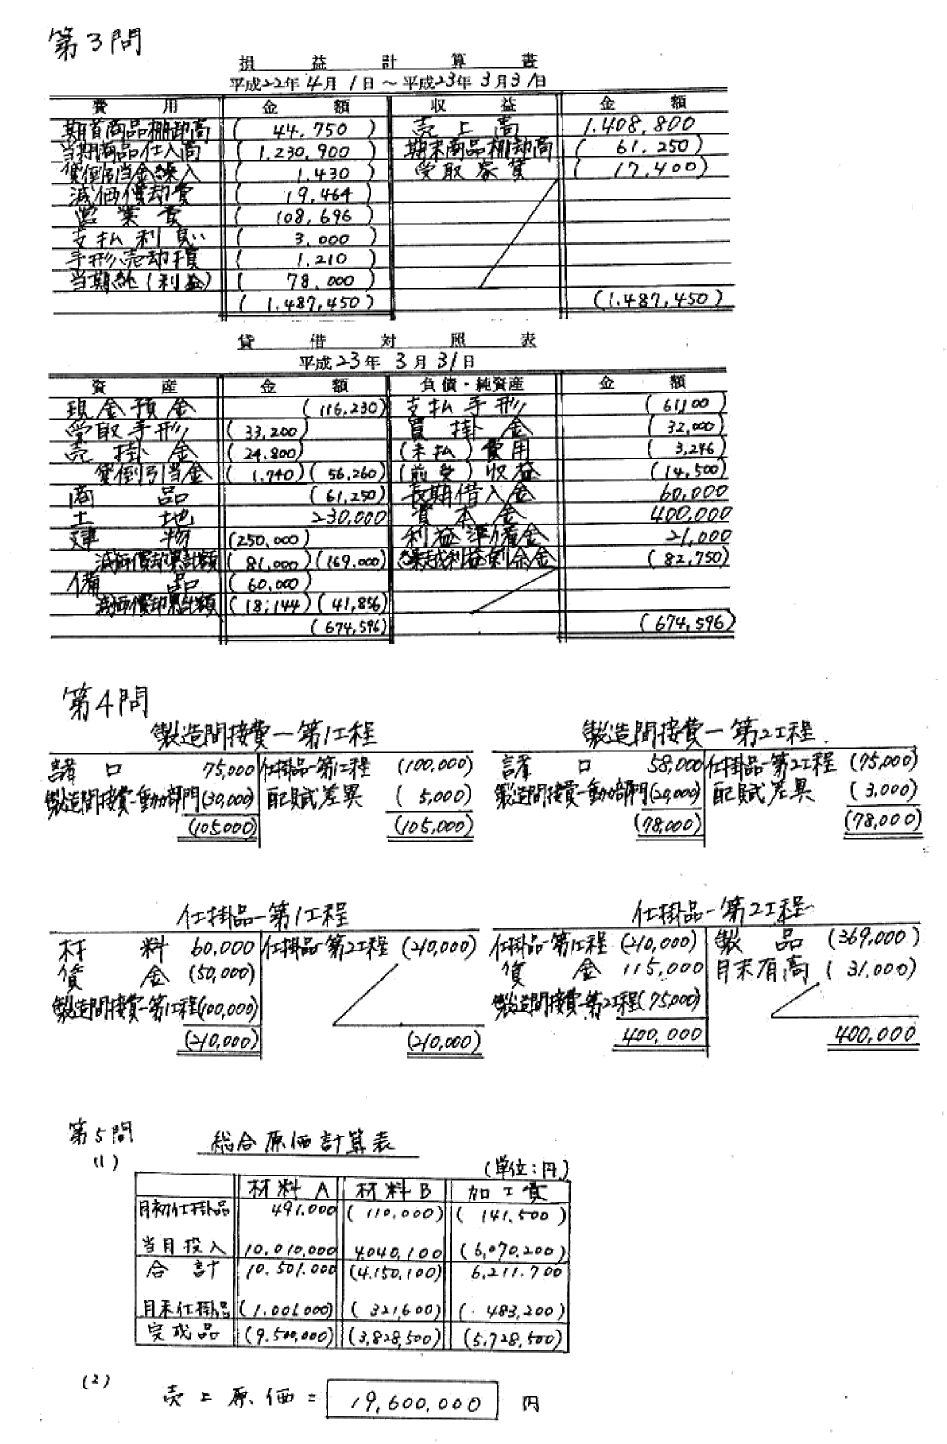 第3問
損益計算書
平成22年4月1日～平成23年3月31日
費用 金額 収益 金額
期首商品棚卸高 (44,750) 売上高 1,408,800
当期商品仕入高 (1,230,900) 期末商品棚卸高 (61,250)
貸倒引当金繰入 (1,430) 受取家賃 (17,400)
減価償却費 (19,464)
営業費 (108,696)
支払利息 (3,000)
手形売却損 (1,210)
当期純(利益) (78,000)
(1,487,450) (1,487,450)
貸借対照表
平成23年3月31日
資産 金額 負債・純資産 金額
現金預金 (116,230) 支払手形 (61,100)
受取手形 (33,200) 買掛金 (32,000)
売掛金 (24,800) (未払)費用 (3,246)
貸倒引当金 (1,740) (56,260) (前受)収益 (14,500)
商品 (61,250) 長期借入金 60,000
土地 230,000 資本金 400,000
建物 (250,000) 利益準備金 21,000
減価償却累計額 (81,000) (169,000) 繰越利益剰余金 (82,750)
備品 (60,000)
減価償却累計額 (18,144) (41,856)
(674,596) (674,596)
第4問
製造間接費－第1工程
諸口 75,000 仕掛品－第1工程 (100,000)
製造間接費－動力部門 (30,000) 配賦差異 (5,000)
(105,000) (105,000)
製造間接費－第2工程
諸口 58,000 仕掛品－第2工程 (75,000)
製造間接費－動力部門 (20,000) 配賦差異 (3,000)
(78,000) (78,000)
仕掛品－第1工程
材料 60,000 仕掛品－第2工程 (210,000)
賃金 (50,000)
製造間接費－第1工程 (100,000)
(210,000) (210,000)
仕掛品－第2工程
仕掛品－第1工程 (210,000) 製品 (369,000)
賃金 115,000 月末有高 (31,000)
製造間接費－第2工程 (75,000)
400,000 400,000
第5問
(1)
総合原価計算表
(単位:円)
材料A 材料B 加工費
月初仕掛品 491,000 (110,000) (141,500)
当月投入 10,010,000 4,040,100 (6,070,200)
合計 10,501,000 (4,150,100) 6,211,700
月末仕掛品 (1,001,000) (321,600) (483,200)
完成品 (9,500,000) (3,828,500) (5,728,500)
(2)
売上原価= 19,600,000 円